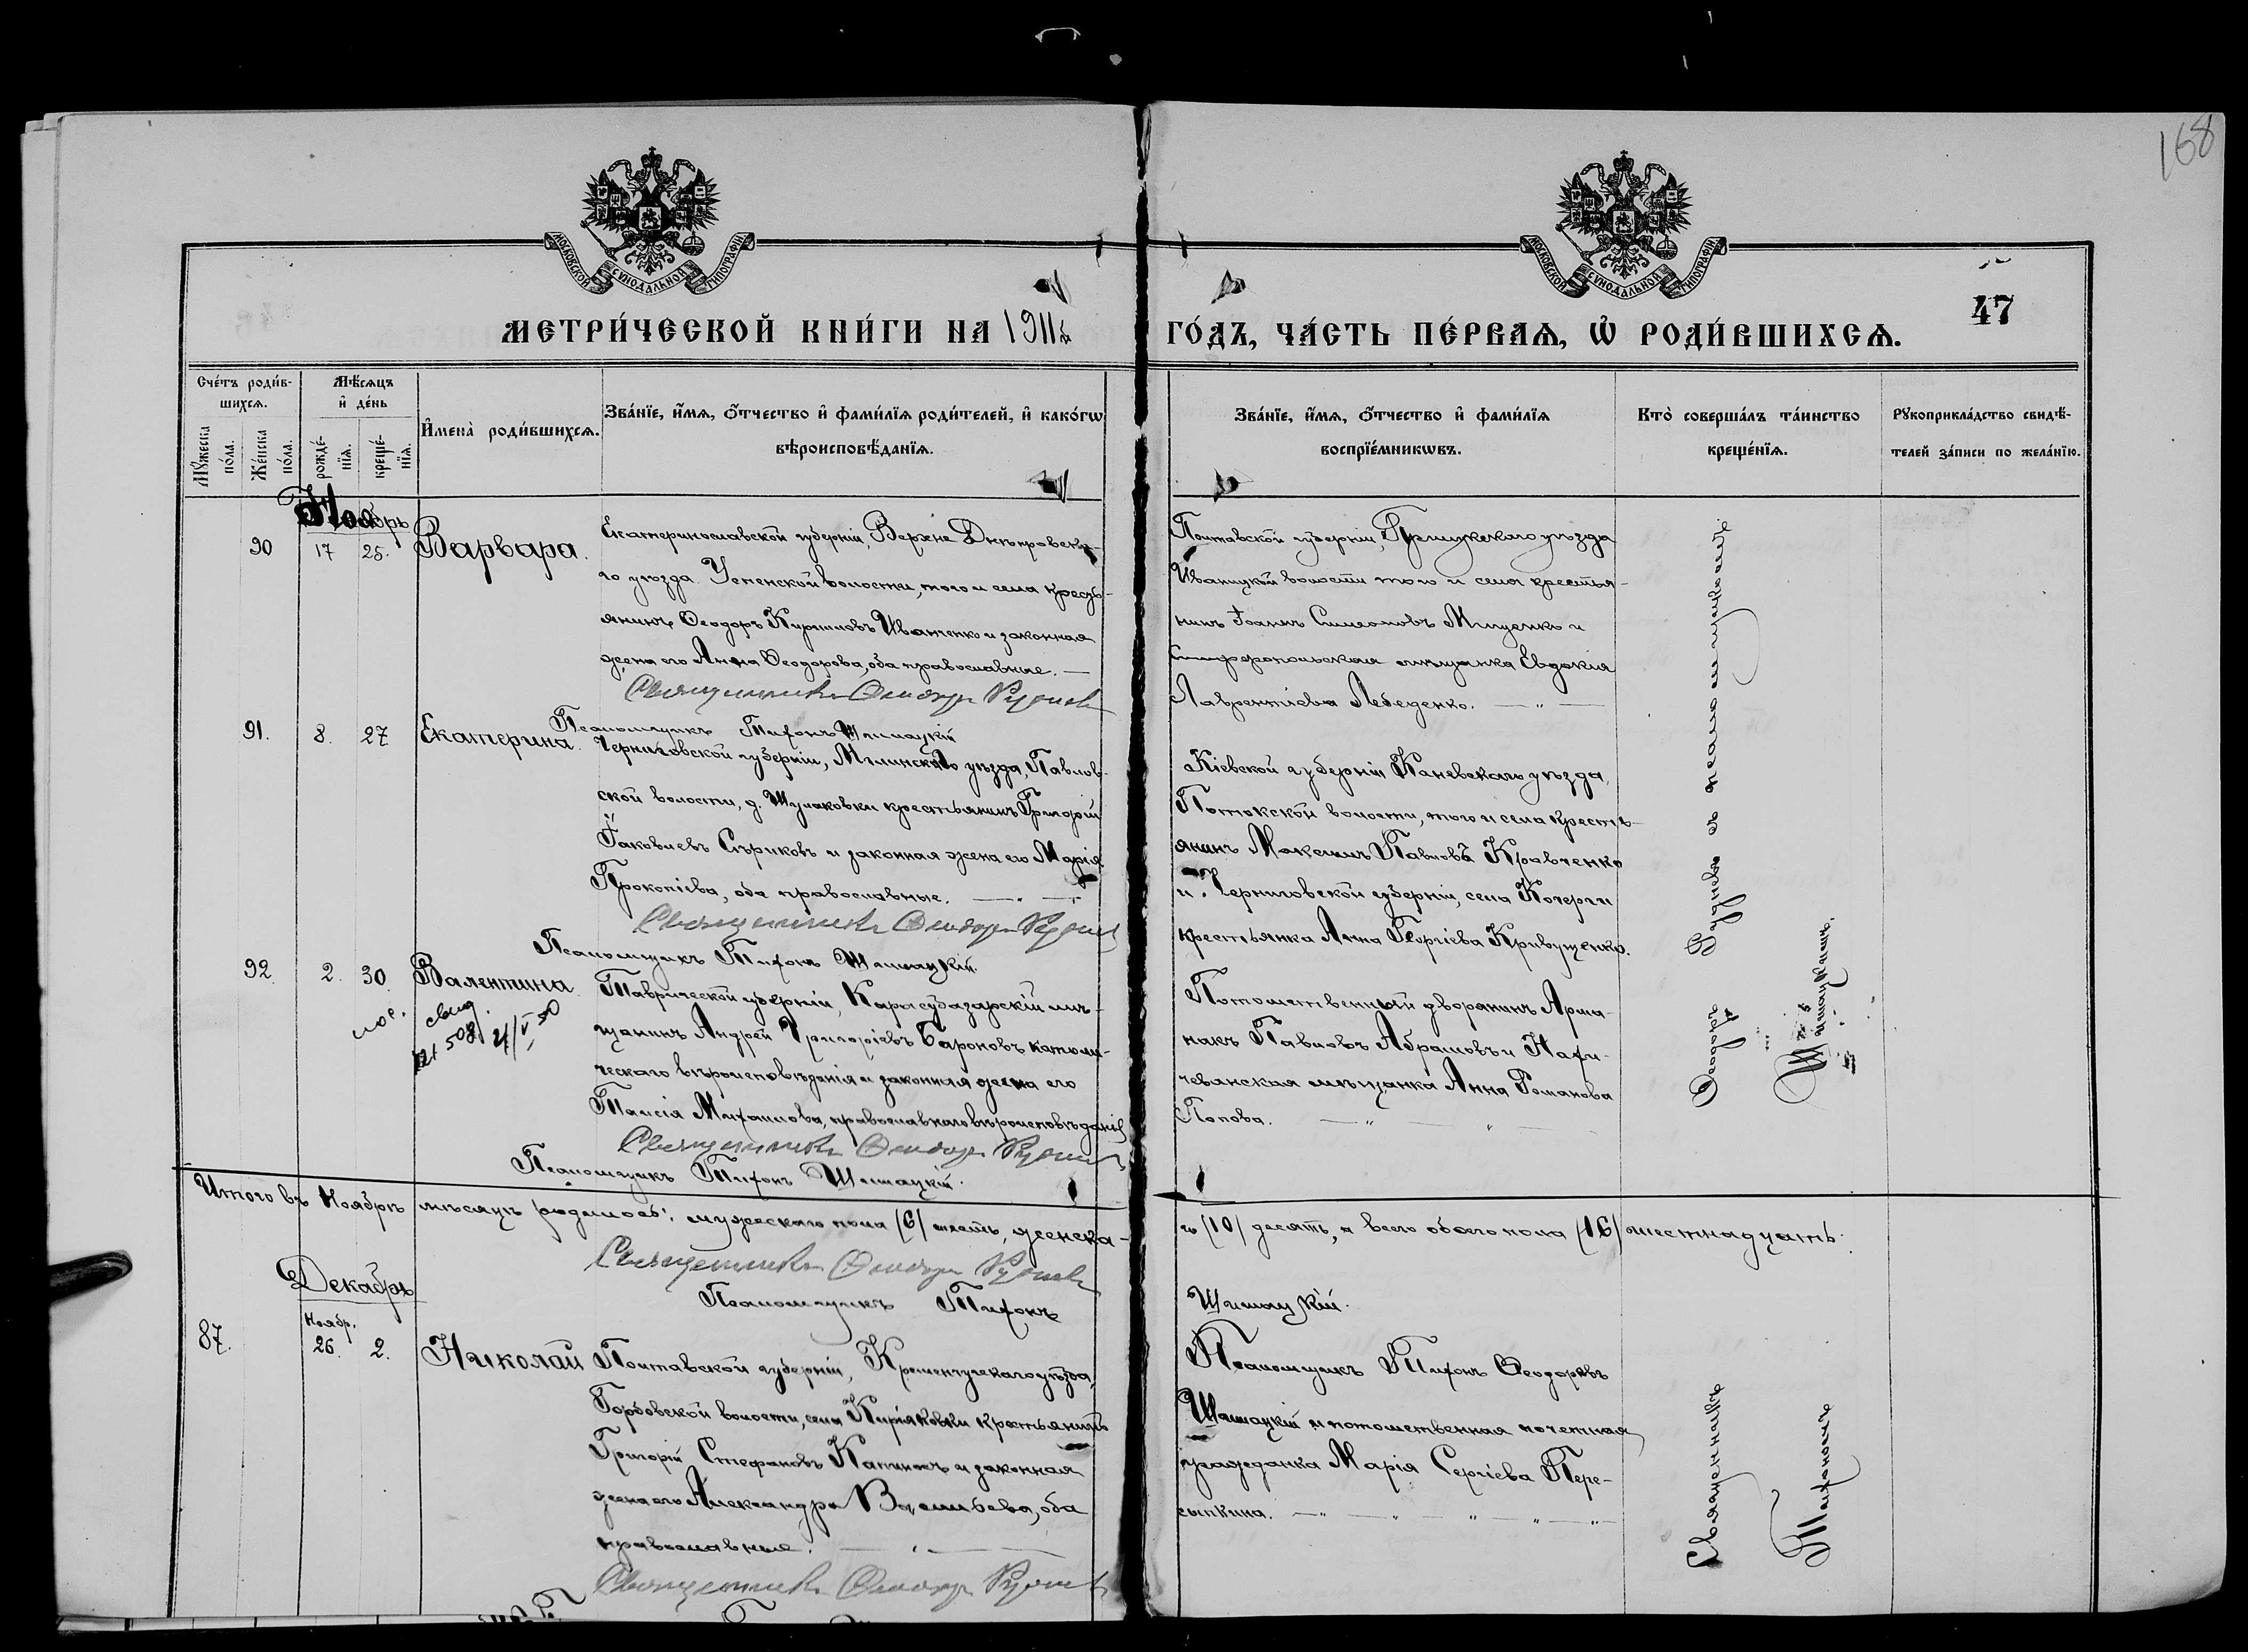 168
МОСКОВСКОЙ СУНОДАЛЬНОЙ ТИПОГРАФІИ
МОСКОВСКОЙ СУНОДАЛЬНОЙ ТИПОГРАФІИ
47
МЕТРИ́ЧЕСКОЙ КНИ́ГИ НА 1911й ГО́ДЪ, ЧА́СТЬ ПЕ́РВАѦ, Ѡ РОДИ́ВШИХСѦ.
Сче́тъ роди́в-
шихсѧ.
Мꙋ́жеска по́ла.
Же́нска по́ла.
Мѣ́сѧцъ и҆ де́нь
рожде́-нїѧ.
креще́-нїѧ.
И҆мена̀ роди́вшихсѧ.
Зва́нїе, и҆́мѧ, ѻ҆́тчество и҆ фами́лїѧ роди́телей, и҆ како́гѡ
вѣроисповѣ́данїѧ.
Зва́нїе, и҆́мѧ, ѻ҆́тчество и҆ фами́лїѧ
воспрїе́мникѡвъ.
Кто̀ соверша́лъ та́инство
креще́нїѧ.
Рꙋкоприкла́дство свидѣ́-
телей за́писи по жела́нїю.
Ноябрь
90 17 25. Варвара.
Екатеринославской губерніи, Верхне Днѣпровска-
го уѣзда Успенской волости, того и села кресть-
янинъ Ѳеодоръ Кирилловъ Иванченко и законная
жена его Анна Ѳеодорова, оба православные. —
Священникъ Ѳеодоръ Руднев
Псаломщикъ Тихонъ Шимацкій
Полтавской губерніи, Прилукскаго уѣзда
Иваницкой волости того и села крестья-
нинъ Іоаннъ Симеоновъ Мищенко и
Симферопольская мѣщанка Евдокія
Лаврентіева Лебеденко. — " —
91. 8. 27 Екатерина.
Черниговской губерніи, Мглинскаго уѣзда, Павлов-
ской волости, д. Шулаковки крестьянинъ Григорій
Іаковлевъ Сѣриковъ и законная жена его Марія
Прокопіева, оба православные. — " —
Священникъ Ѳеодоръ Руднев
Псаломщикъ Тихонъ Шимацкій.
Кіевской губерніи Каневскаго уѣзда,
Потокской волости, того и села кресть-
янинъ Максимъ Павловъ Кравченко
и Черниговской губерніи, села Кочерги
крестьянка Анна Георгіева Кривущенко.
92. 2. 30. Валентина
свид.
508
Таврической губерніи, Карасубазарскій мѣ-
щанинъ Андрей Григоріевъ Бароновъ католи-
ческаго вѣроисповѣданія и законная жена его
Таисія Михаилова, православнаго вѣроисповѣданія
Священникъ Ѳеодоръ Руднев
Псаломщикъ Тихонъ Шимацкій.
Потомственный дворянинъ Арша-
макъ Павловъ Абрамовъ и Нахи-
чеванская мѣщанка Анна Романова
Попова. — " — " —
Ѳеодоръ Рудневъ съ псаломщикомъ
Шимацкимъ.
Итого въ Ноябрѣ мѣсяцѣ родилось: мужескаго пола (6) шесть, женска-
го (10) десять, а всего обоего пола (16) шестнадцать.
Священникъ Ѳеодоръ Руднев
Псаломщикъ Тихонъ Шимацкій.
Декабрь
Ноябр.
87. 26. 2. Николай
Полтавской губерніи, Кременчугскаго уѣзда,
Горбовской волости, села Киріяковки крестьянинъ
Григорій Стефановъ Капиносъ и законная
жена его Александра Васильева, оба
православные. — " —
Священникъ Ѳеодоръ Руднев
Псаломщикъ Тихонъ Ѳеодоровъ
Шимацкій и потомственная почетная
гражданка Марія Сергіева Пере-
сыпкина. — " — " — " — " — "
Священникъ
Тихономъ